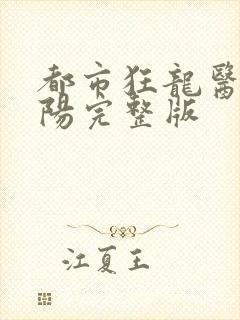 都市狂龍醫
陽完整版
江夏王